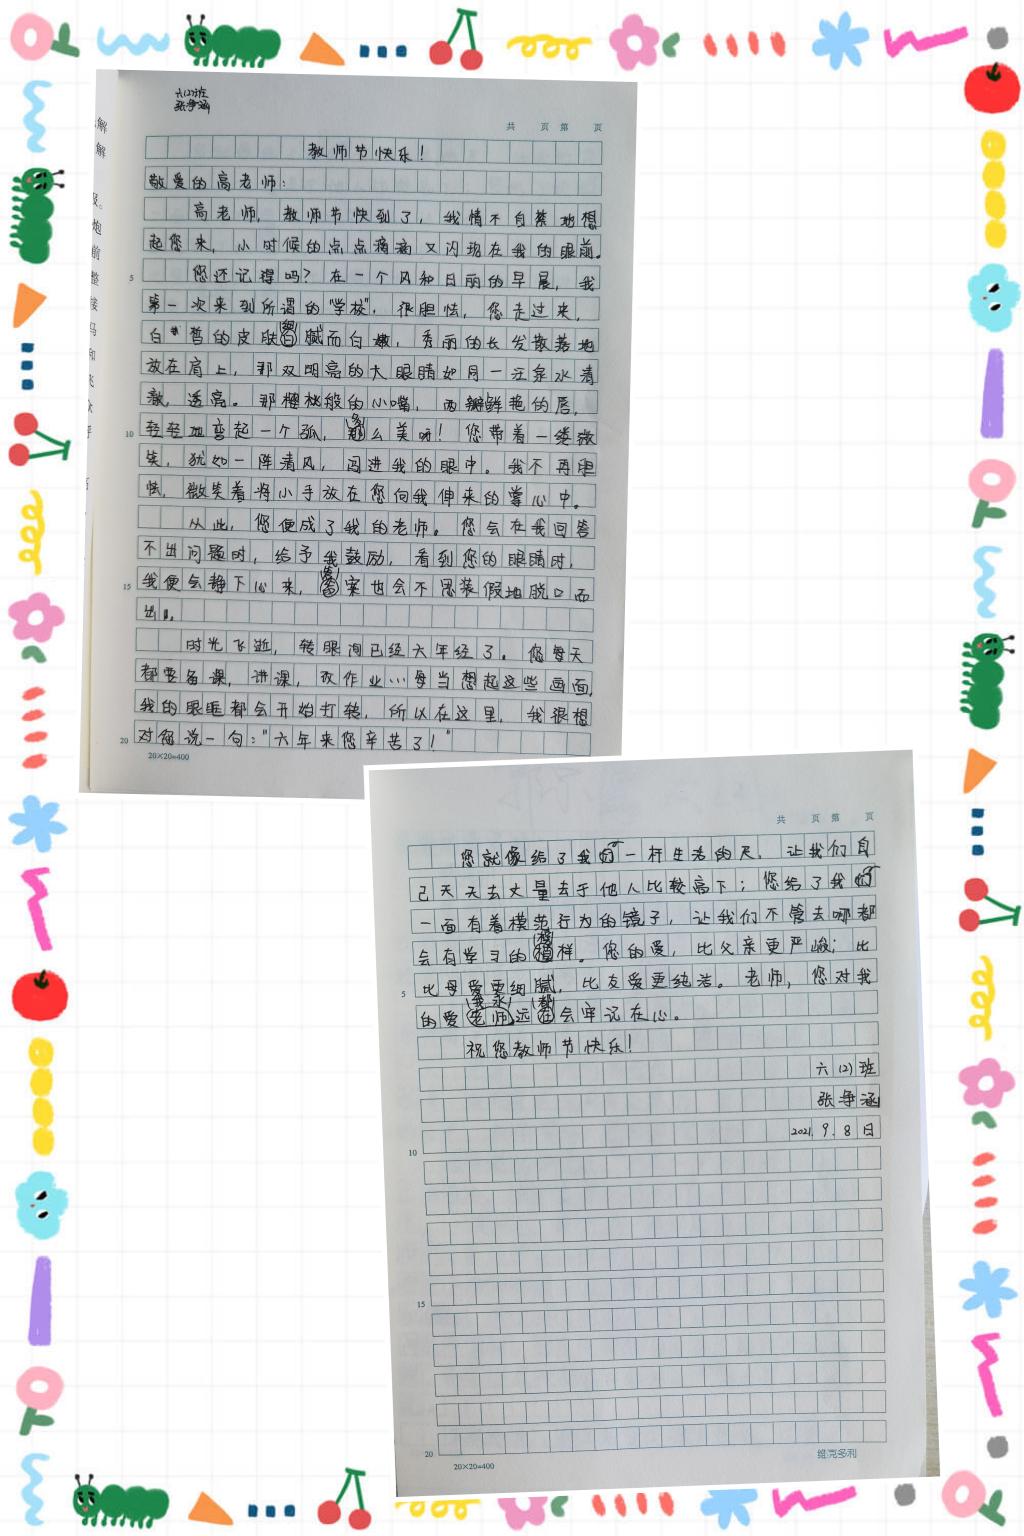 六(2)班
张争涵
共 页 第 页
教师节快乐!
敬爱的高老师:
高老师,教师节快到了,我情不自禁地想
起您来,小时候的点点滴滴又闪现在我的眼前。
您还记得吗?在一个风和日丽的早晨,我
第一次来到所谓的"学校",很胆怯,您走过来,
白皙的皮肤细腻而白嫩,秀丽的长发散落地
放在肩上,那双明亮的大眼睛如同一汪泉水清
澈,透亮。那樱桃般的小嘴,两瓣鲜艳的唇,
轻轻地弯起一个弧,多么美呀!您带着一缕微
笑,犹如一阵清风,闯进我的眼中。我不再胆
怯,微笑着将小手放在您向我伸来的掌心中。
从此,您便成了我的老师。您会在我回答
不出问题时,给予我鼓励,看到您的眼睛时,
我便会静下心来,答案也会不思装假地脱口而
出。
时光飞逝,转眼间已经六年级了。您每天
都要备课,讲课,改作业…每当想起这些画面,
我的眼眶都会开始打转,所以在这里,我很想
对您说一句:"六年来您辛苦了!"
5
10
15
20
20×20=400
共 页 第 页
您就像给了我们一杆生活的尺,让我们自
己天天去丈量去于他人比较高下;您给了我们
一面有着模范行为的镜子,让我们不管去哪都
会有学习的榜样。您的爱,比父亲更严峻;比
比母爱更细腻,比友爱更纯洁。老师,您对我
的爱我永远都会牢记在心。
祝您教师节快乐!
六(2)班
张争涵
2021.9.8日
5
10
15
20
20×20=400
维克多利